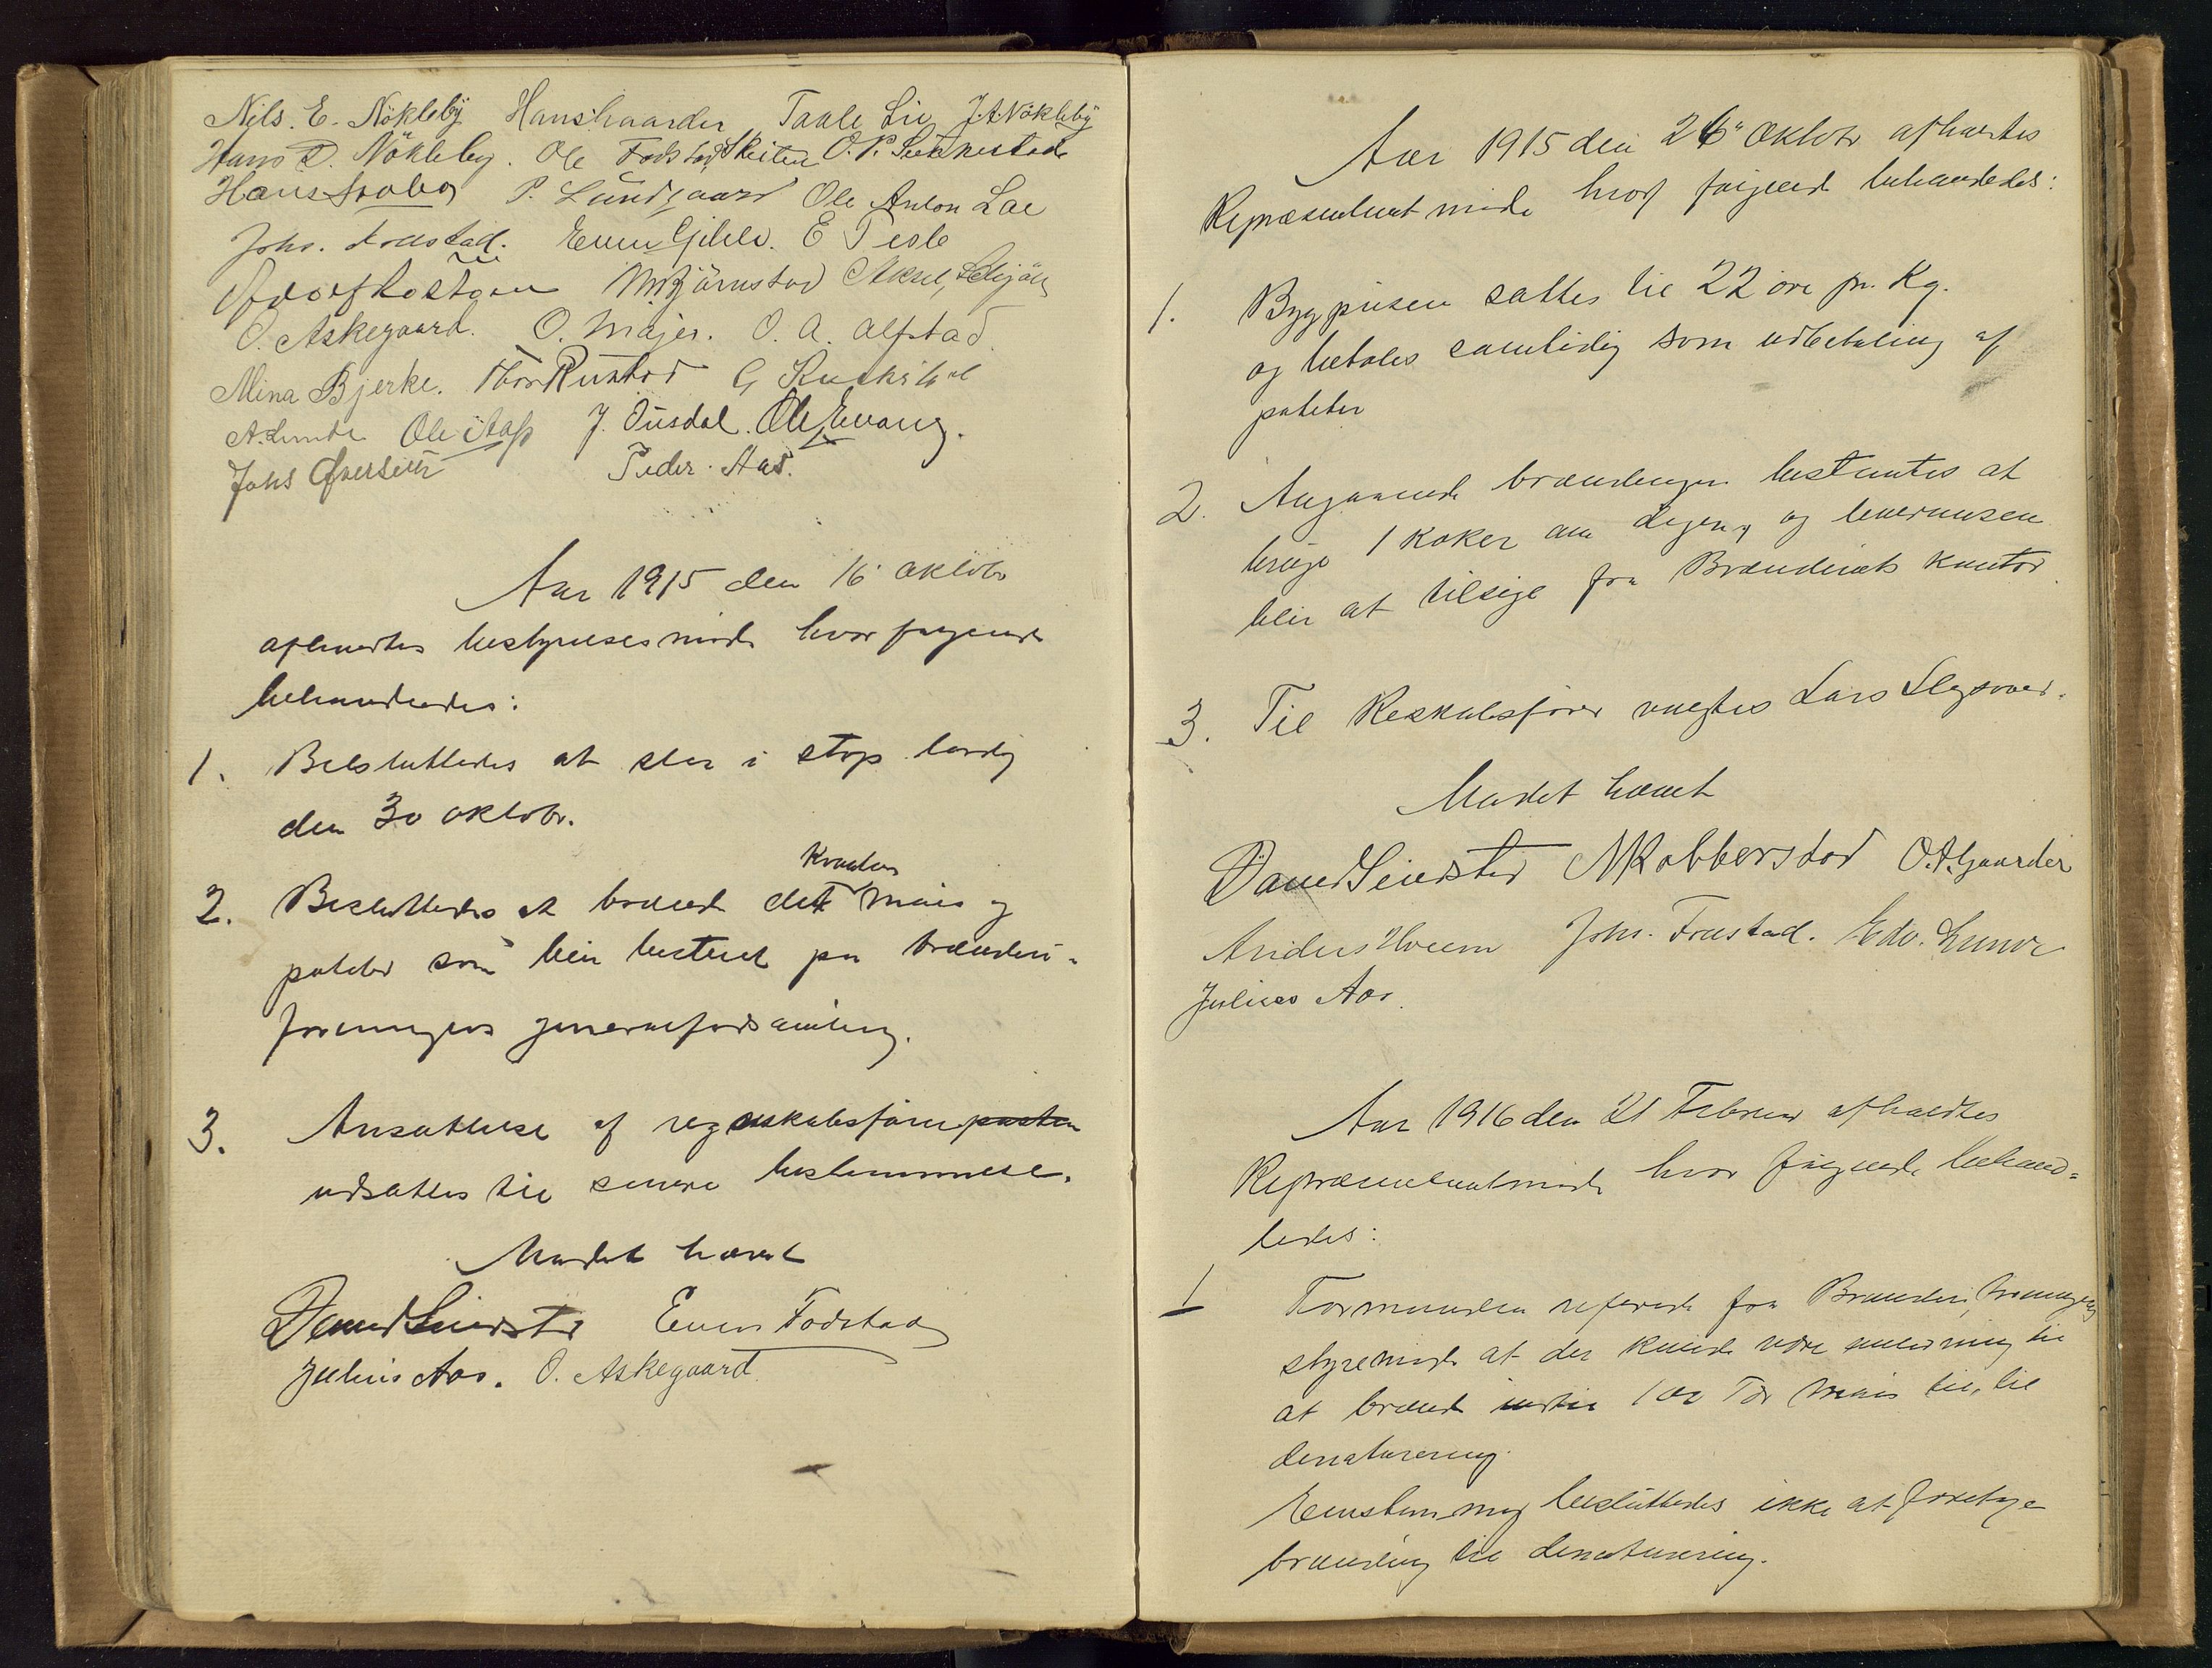 Nils. E. Nökleby Hans haarder Taale Lie J.A. Nökleby
Hans D. Nökleby. Ole Fodstad Skiten O. P. Sukkestad
Hans P. Lundgaard Ole Anton Lae
Johs. Frustad. Even Gihle. E Tesle
M Bjørnstad
O. Askegaard. O. Majer. O. A. Alfstad
Mina Bjerke. Thor Rustad G
A. Lunde Ole Aas J. Ousdal. Ole Evang.
Johs Peder. Aas.
Aar 1915 den 16 oktobr
afholdtes bestyrelsesmøde hvor følgende
behandledes:
1. Beslutledes at slaa i stop lørdag
den 30 oktobr.
2. Beslutledes at brænde det kvantum mais og
poteter som blir bestemt paa brænderi-
foreningens generalforsamling.
3. Ansættelse af regnskabsfører posten
udsættes til senere bestemmelse.
Mødet hævet
Even Fodstad
Julius Aas. O. Askegaard.
Aar 1915 den 26" oktobr afholdtes
Repræsentantmøde hvor følgende behandledes:
1. Bygprisen sattes til 22 øre pr. Kg.
og betales samtidig som udbetaling af
poteter
2. Angaaende brændingen bestemtes at
bruge 1 koker om dagen, og leveransen
blir at tilsige fra Brænderiets kontor
3. Til Regskabsfører valgtes Lars
Mødet hævet
N Kobberstad O. A. Gaarder
Anders Hveem Johs. Frustad. Edv. Lunde
Julius Aas.
Aar 1916 den 21 Februar afholdtes
Repræsentantmøde hvor følgende behand=
ledes:
1 Formanden referede fra Brænderiforeningens
styremøde at der kunde være anledning til
at brænde indtil 100 Tdr mais til, til
denaturering.
Enstemmig besluttedes ikke at foretage
brænding til denaturering.